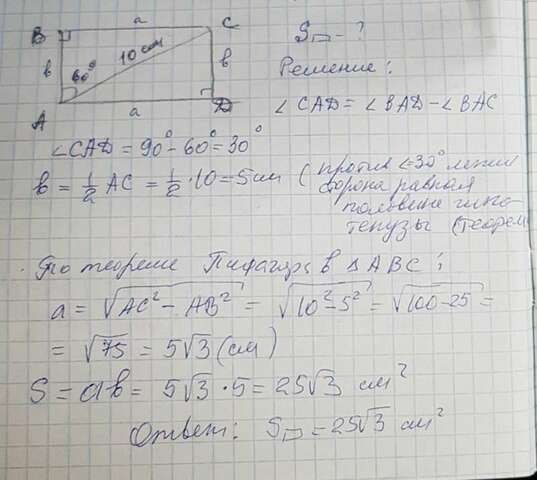 B a C
S▭ - ?
в 60° 10 см в
Решение:
A a D
∠CAD = ∠BAD - ∠BAC
∠CAD = 90° - 60° = 30°
в = 1/2 AC = 1/2 · 10 = 5 см (против ∠=30° лежит
сторона равная
половине гипо-
тенузы (теорем
По теореме Пифагора в △ABC:
a = √(AC² - AB²) = √(10² - 5²) = √(100 - 25) =
= √75 = 5√3 (см)
S = aв = 5√3 · 5 = 25√3 см²
Ответ: S▭ = 25√3 см²